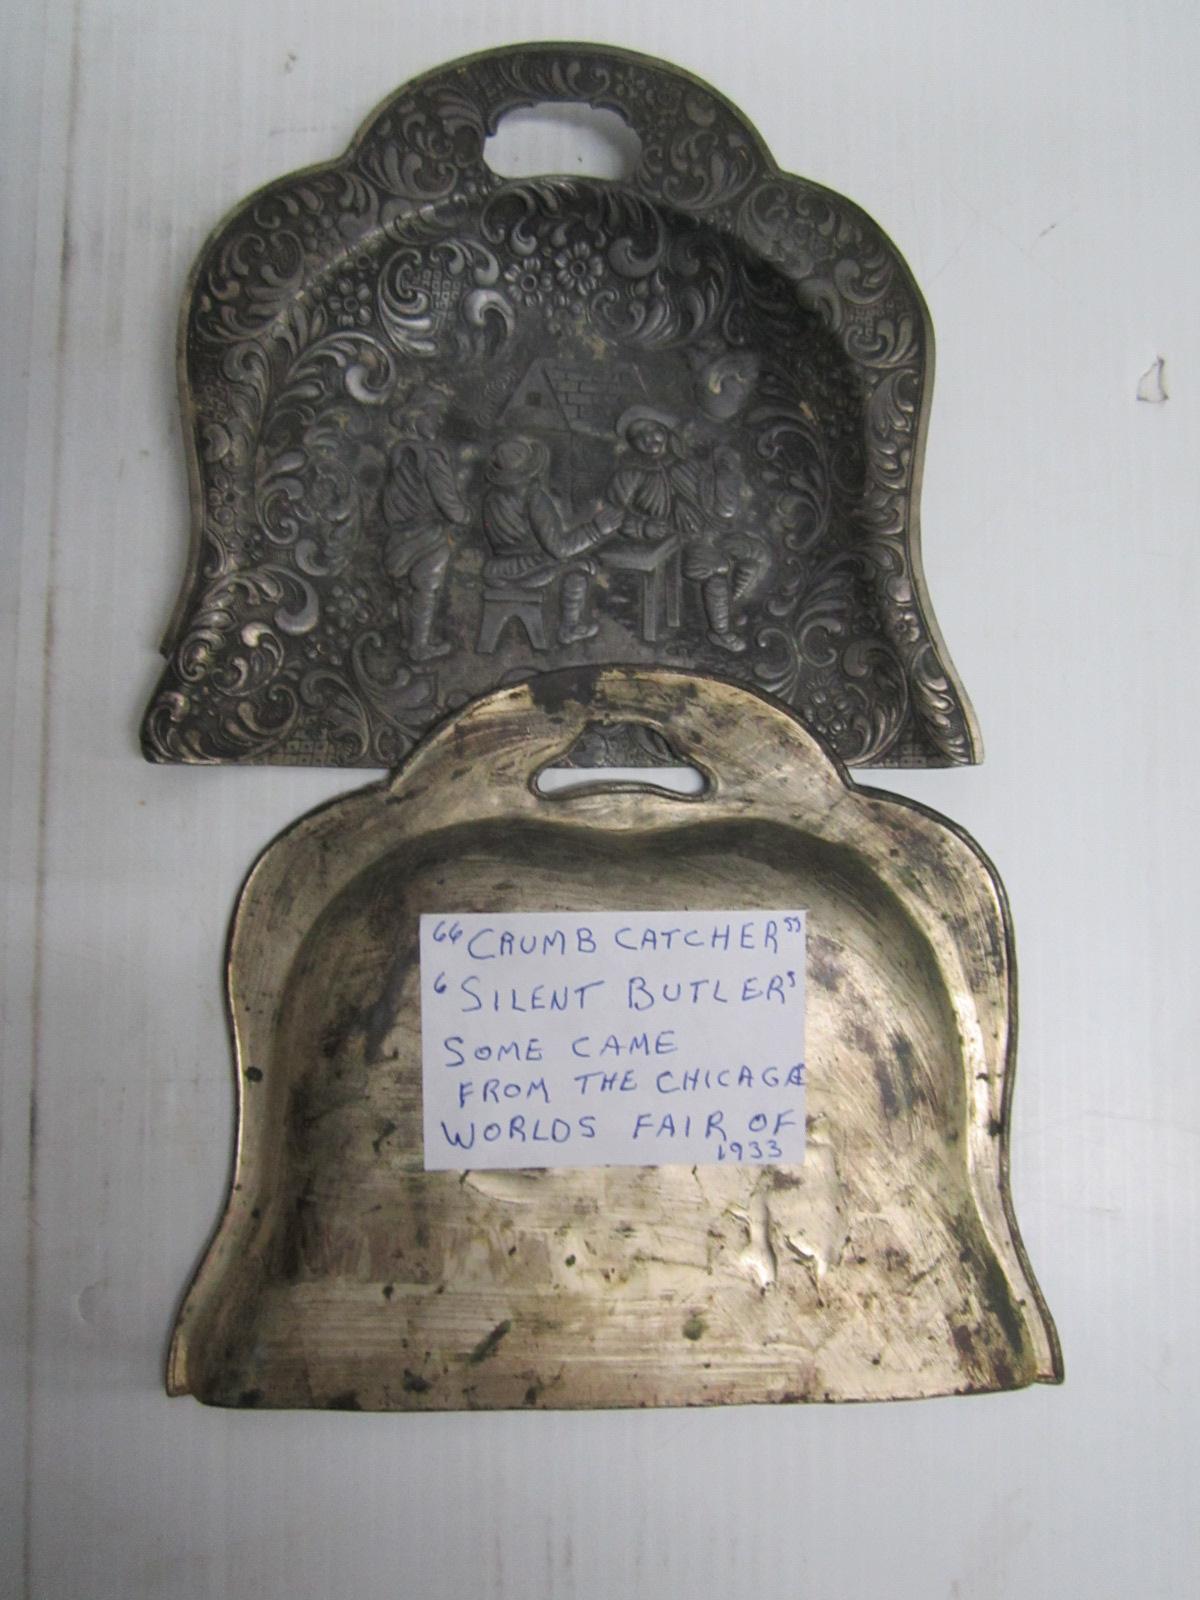 "CRUMB CATCHER"
'SILENT BUTLER'
SOME CAME
FROM THE CHICAGO
WORLDS FAIR OF
1933